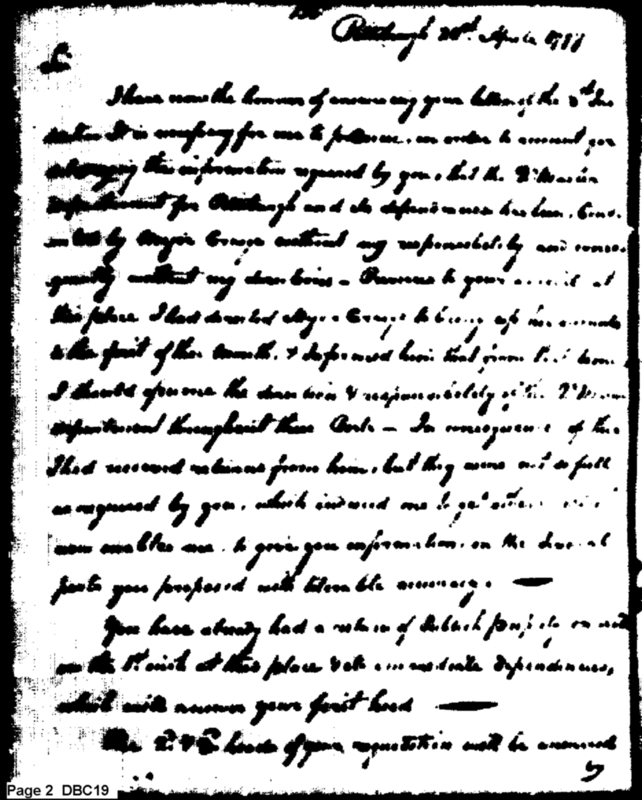 Pittsburgh 20th April 1798
Sir
I have now the honour of answering your letter of the 3rd
It is necessary for me to in order to account for
the information required by you, that the Qr Master
department for Pittsburgh and its dependencies has been
by Major Craig without my responsibility and conse-
quently without my directions – Previous to your arrival at
this place I had directed Major Craig to bring up his accounts
to the first of this Month, & informed him that from that time
I should assume the direction & responsibility of the Qr Master
department throughout these Posts – In consequence of this
I had received returns from him, but they were not so full
as required by you, which induced me to get
now enables me to give you information on the several
parts you proposed with tolerable accuracy. —
You have already had a return of Publick property on
on the 1st at this place & its immediate dependencies,
which will answer your first head —
The heads of your requisition will be answered
by
Page 2 DBC19